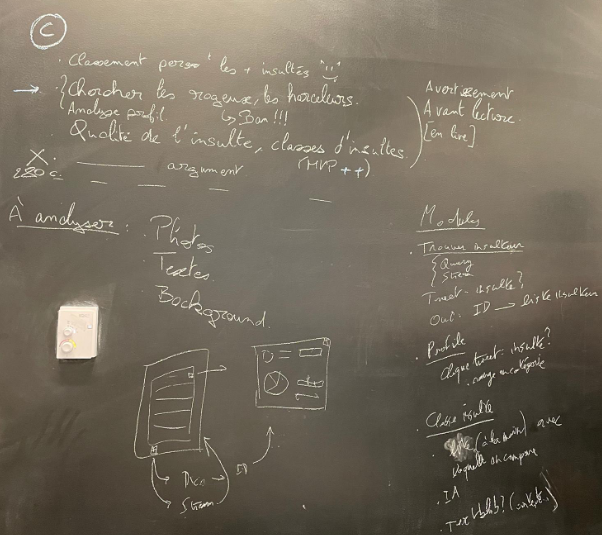 C
. Classement perso les + insultés
→ . Chercher les rageux, les harceleurs.
Analyse profil. ↳ Ban!!!
. Qualité de l'insulte, classes d'insultes.
argument (MVP ++)
X.
280 c.
Avertissement
Avant lecture.
[en live]
À analyser :
. Photos
. Textes
. Background.
ID
Dico
Stream
ID
Modules
. Trouver insulteurs
Query
Stream
Tweet = insulte?
Out: ID → liste insulteurs
. Profile
Chaque tweet: insulte?
. Classe insulte
. (à la main) avec
laquelle on compare
. IA